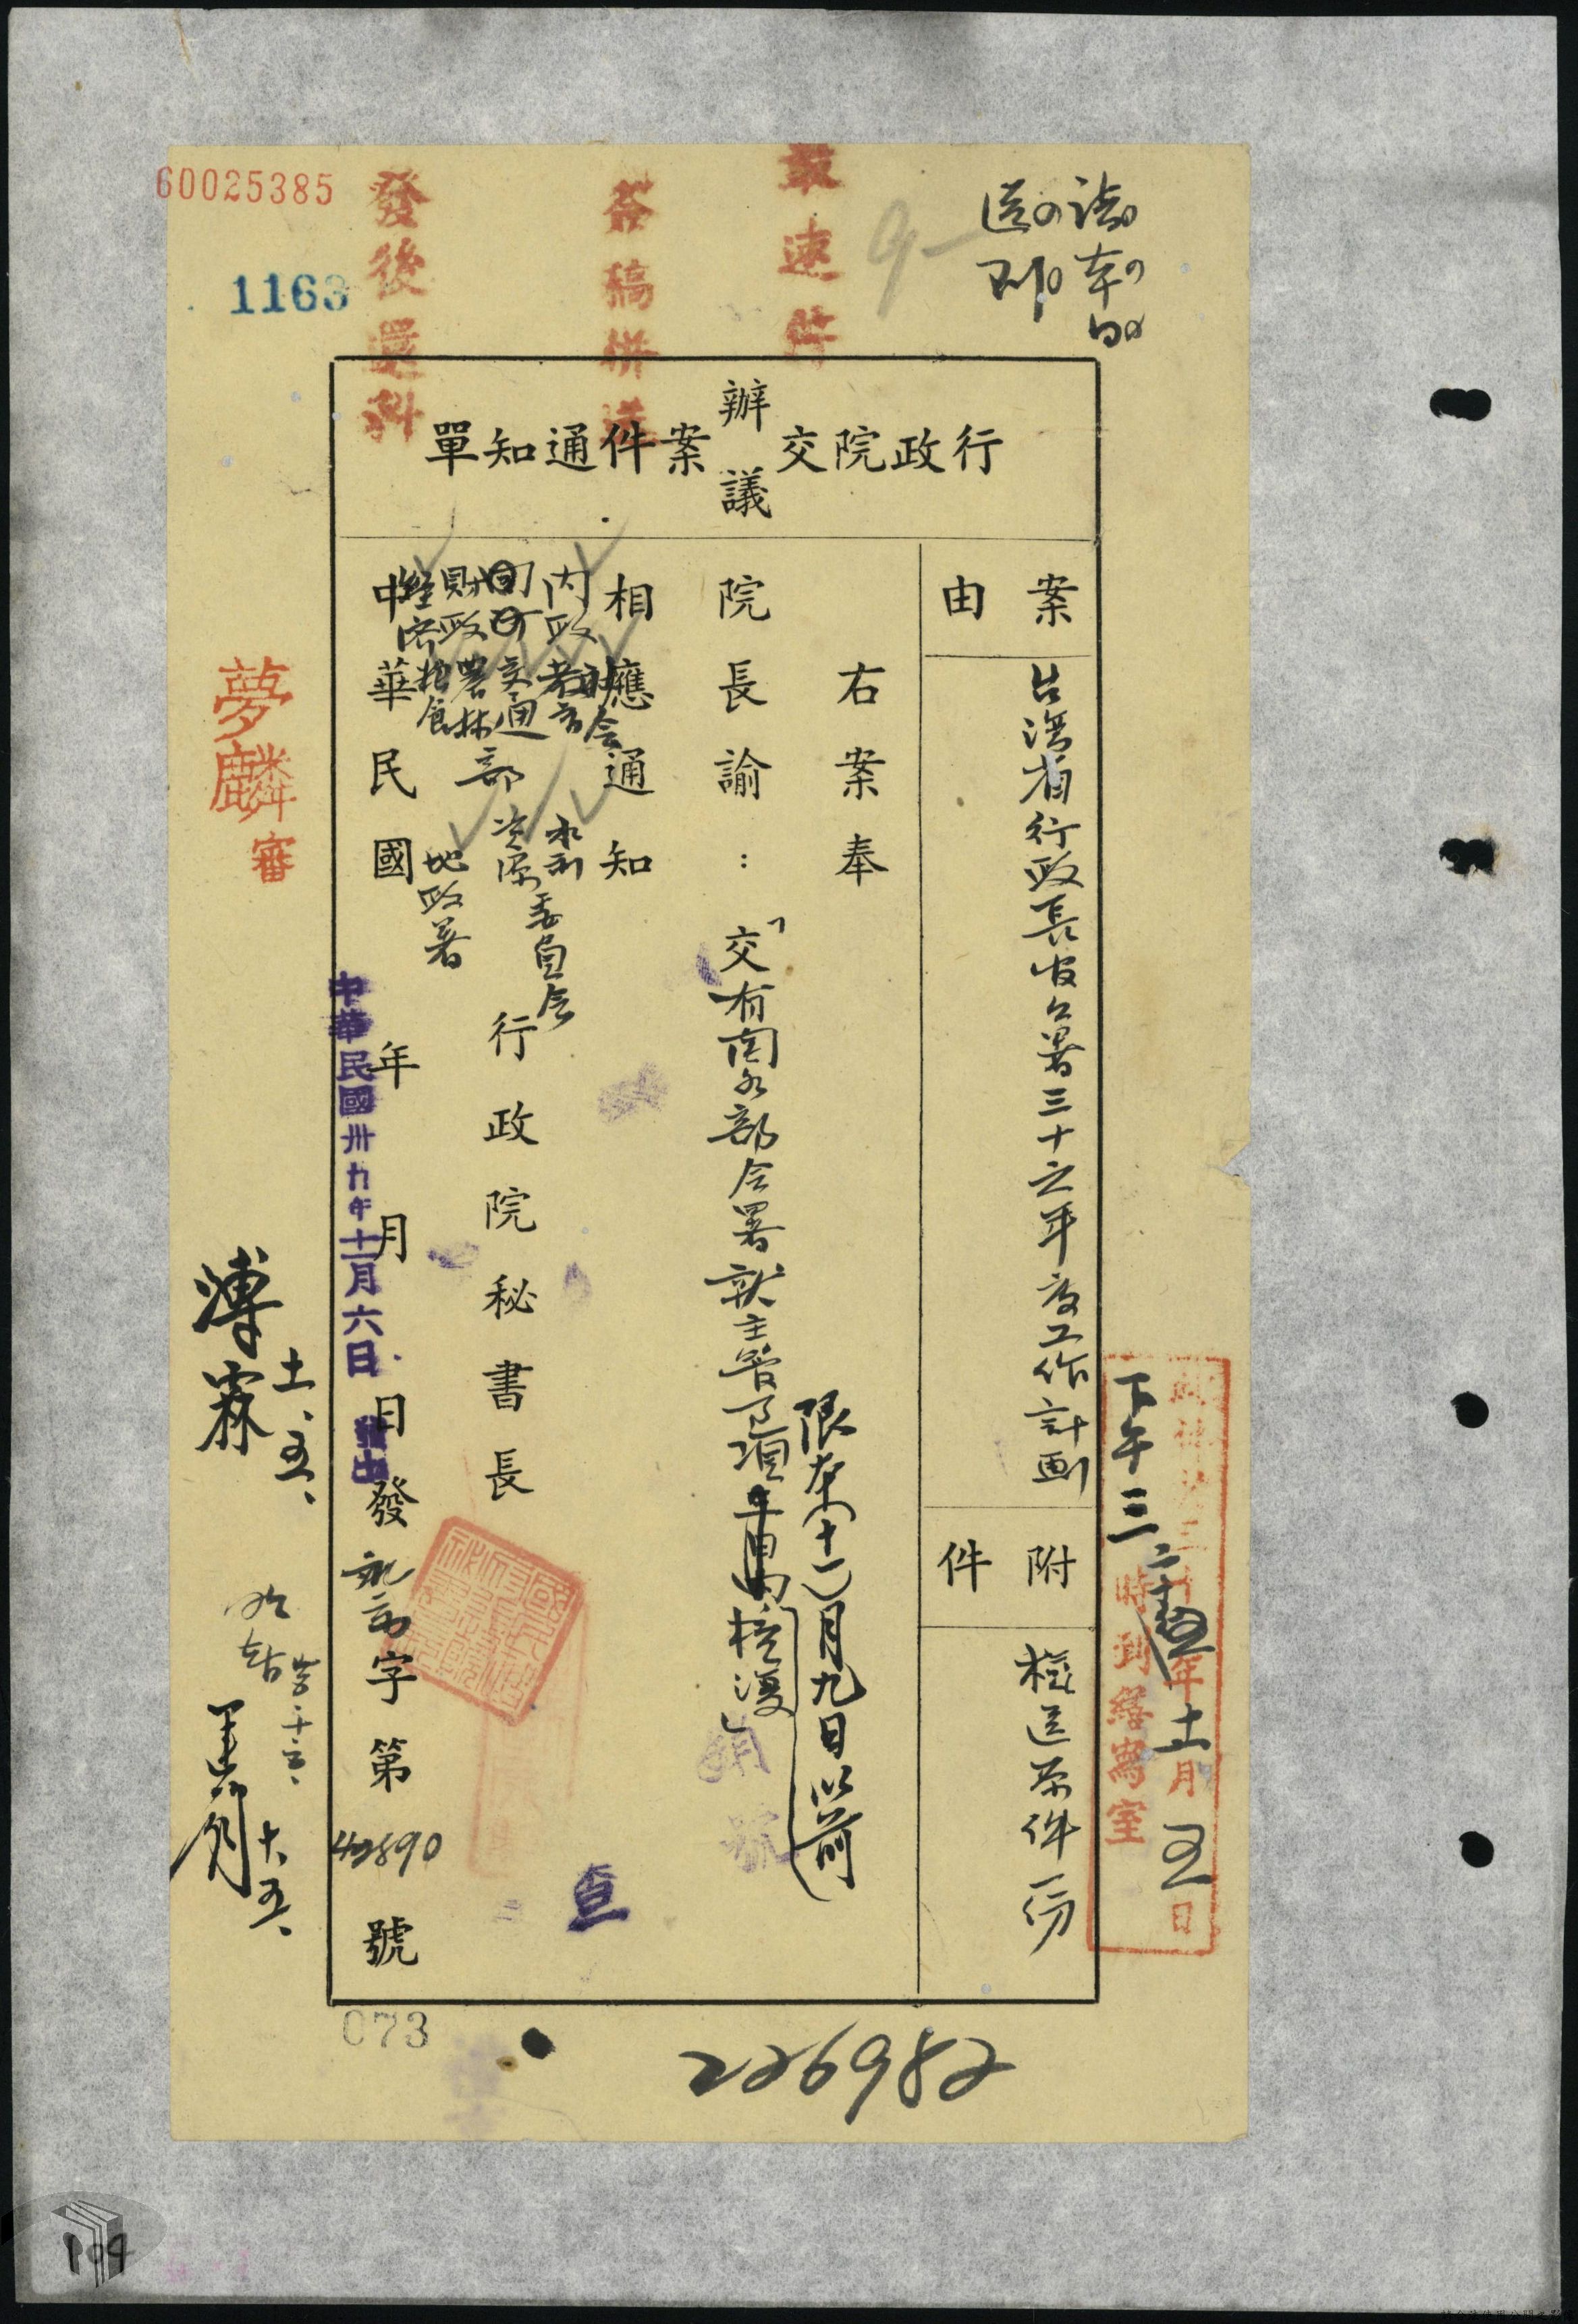 60025385
1163
發後還科
簽稿併送
最速件
請本日
送印
行政院交辦議案件通知單
案由
台灣省行政長官公署三十六年度工作計劃
附件
檢送原件一份
右案奉
院長諭：「交有關各部会署就主管事項
核復」
限本(十一)月九日以前
相應通知
內政
社会
教育
財政
交通
經濟
農林
糧食
部
水利
資源
委員会
地政署
行政院秘書長
中華民國
年
月
日發
字第
42890
號
中華民國卅五年十一月六日
夢麟
審
溥霖
十一、五、
下午三
年十一月五日
時到繕寫室
查
073
226982
109